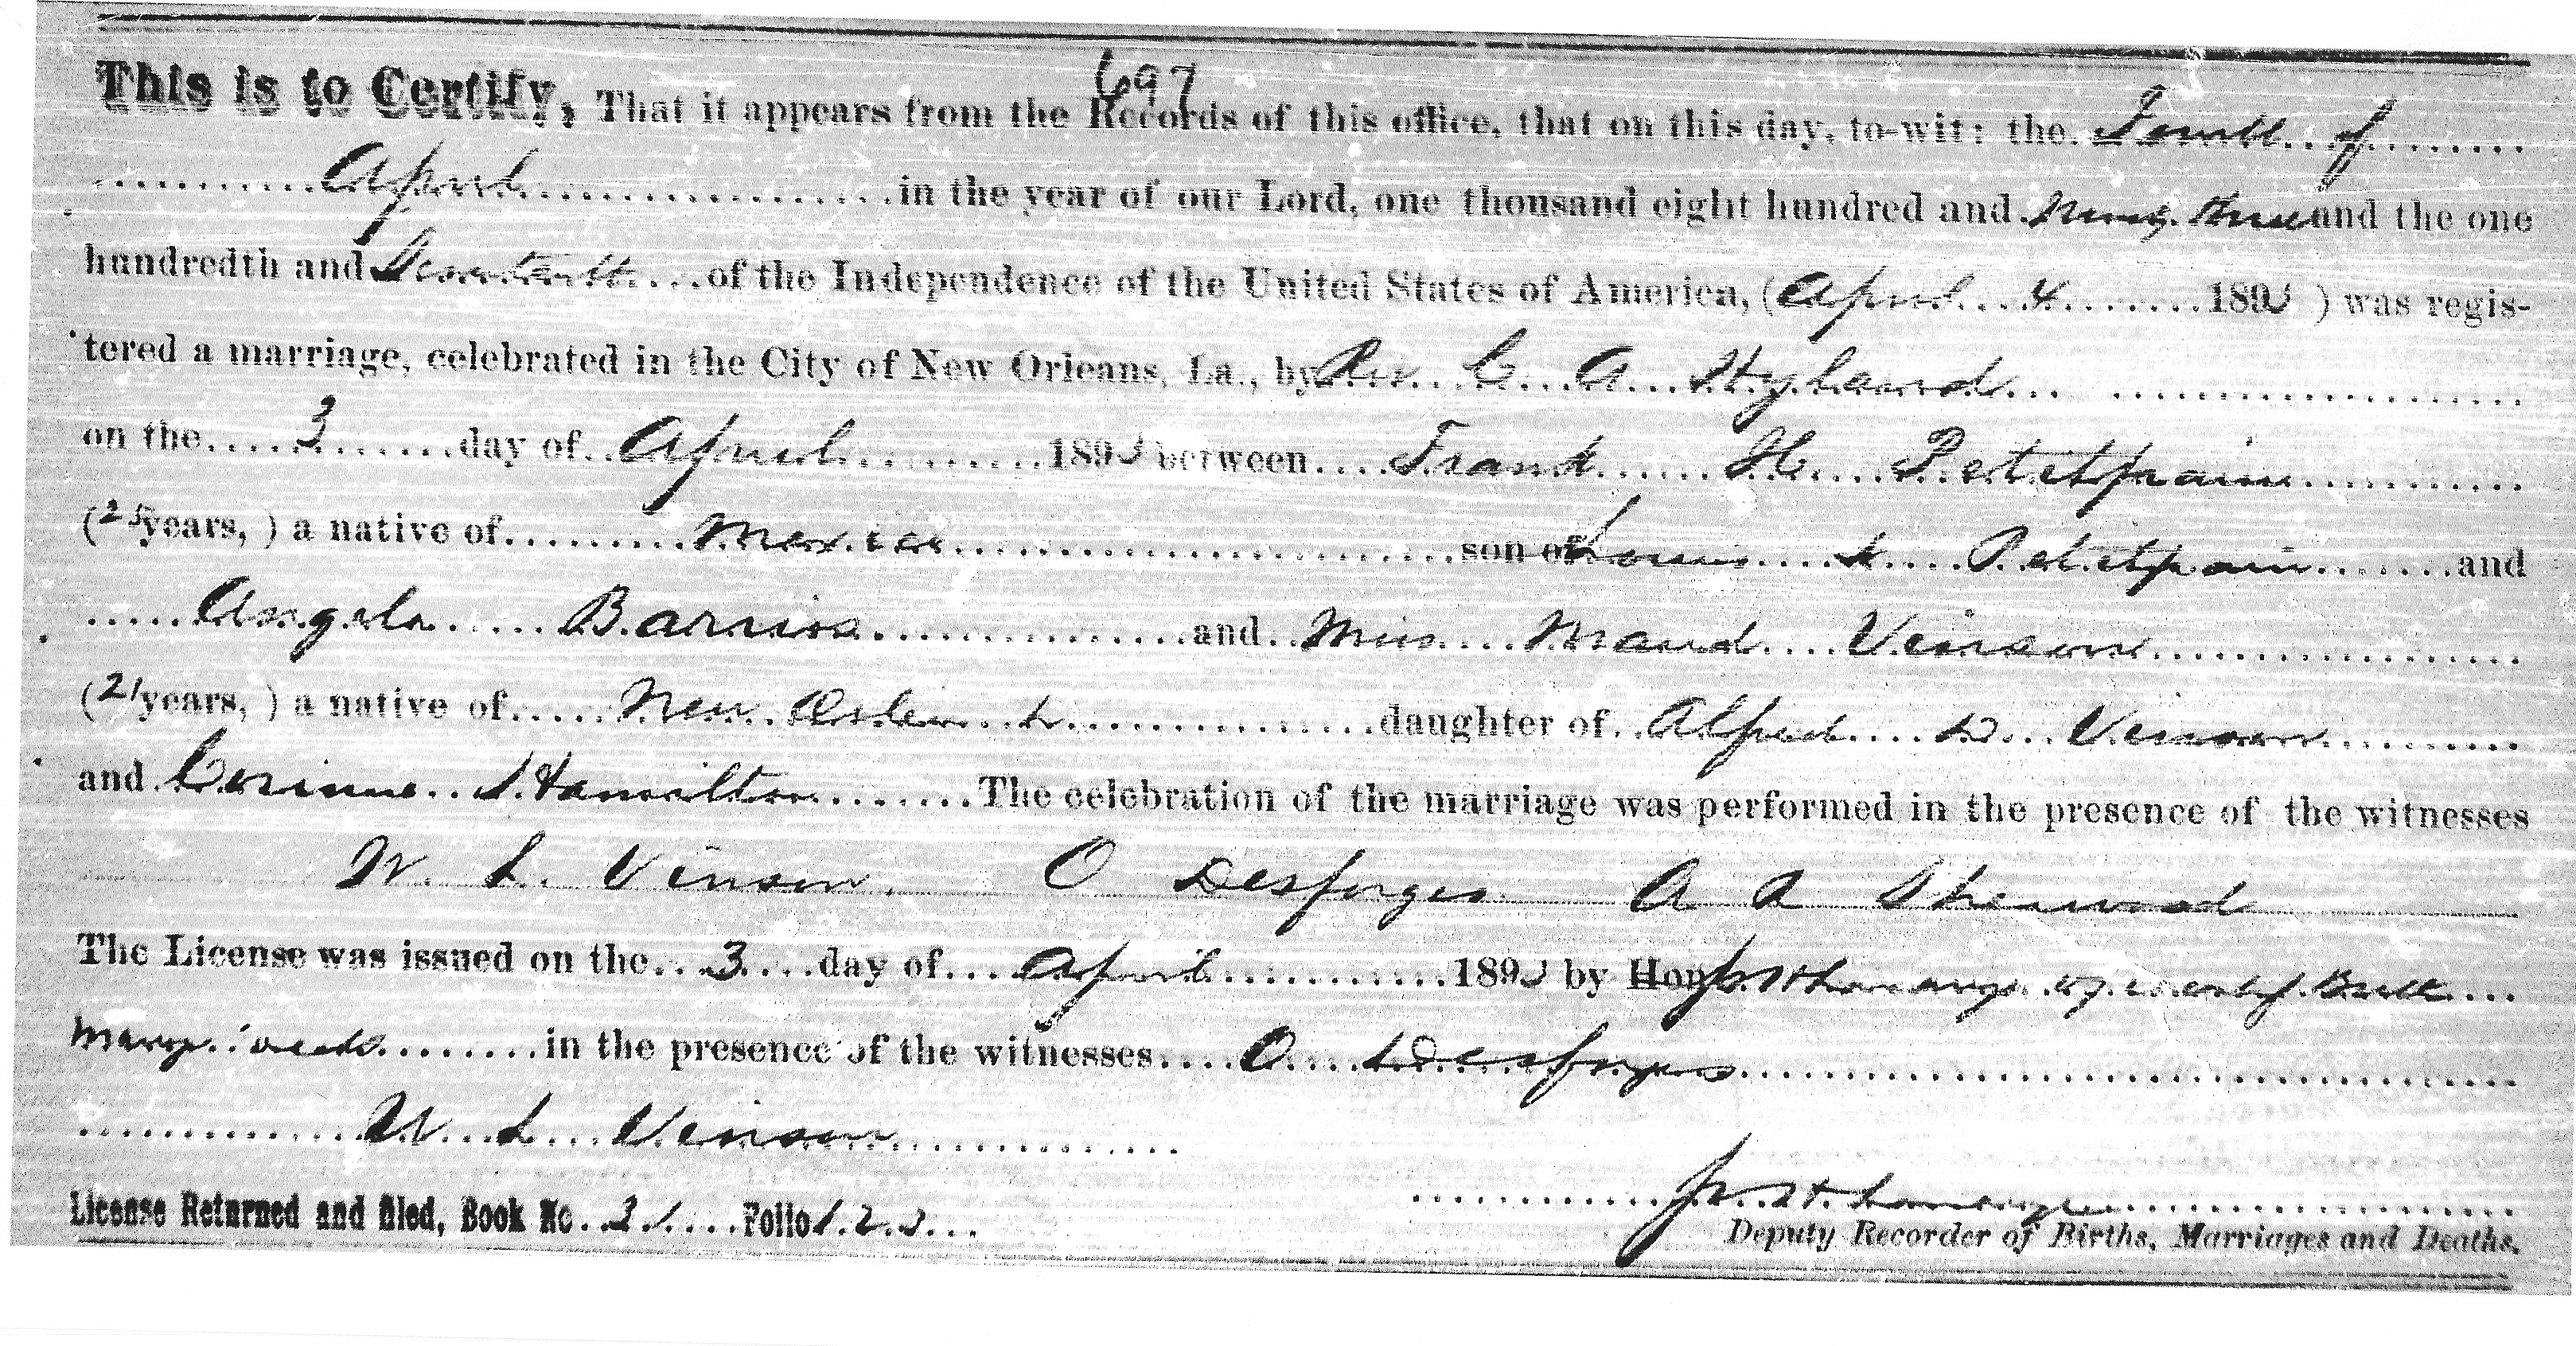 697
This is to Certify, That it appears from the Records of this office, that on this day, to-wit: the Fourth of
April in the year of our Lord, one thousand eight hundred and Ninety three and the one
hundredth and Seventeenth of the Independence of the United States of America, (April 4 1893) was regis-
tered a marriage, celebrated in the City of New Orleans, La., by Rev C A Hyland
on the 3 day of April 1893 between Frank H Petitpain
(25 years, ) a native of Mexico son of Louis L Petitpain and
Angela Barrios and Miss Maud Vinson
(21 years, ) a native of New Orleans L daughter of Alfred D Vinson
and Corinne S Hamilton The celebration of the marriage was performed in the presence of the witnesses
W. L. Vinson O Desforges A A Sherwood
The License was issued on the 3 day of April 1893 by Hon
in the presence of the witnesses O Desforges
W L Vinson
License Returned and filed, Book No 21 Folio 123
Deputy Recorder of Births, Marriages and Deaths.